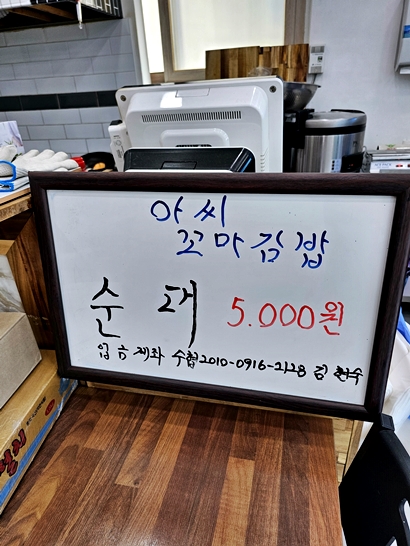 아씨
꼬마김밥
순대 5.000원
입금계좌 수협 2010-0916-2128 김현수